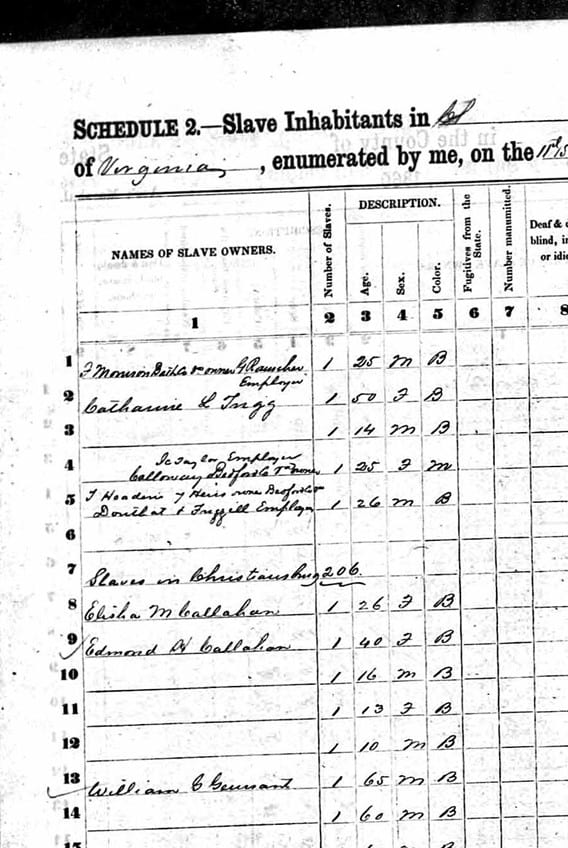 SCHEDULE 2.—Slave Inhabitants in
of Virginia, enumerated by me, on the
NAMES OF SLAVE OWNERS.
Number of Slaves.
DESCRIPTION.
Age.
Sex.
Color.
Fugitives from the State.
Number manumitted.
Deaf &
blind, in
or idi
1 2 3 4 5 6 7 8
1 owner G Rauscher 1 25 M B
Employer
2 Catharine L Trigg 1 50 F B
3 1 14 M B
4 Taylor Employer
Calloway Bedford Co Va owner 1 25 F M
5 Heirs owner Bedford Co Va
Douthat & Employer 1 26 M B
6
7 Slaves in Christiansburg 206.
8 Elisha M Callahan 1 26 F B
9 Edmond H Callahan 1 40 F B
10 1 16 M B
11 1 13 F B
12 1 10 M B
13 William C 1 65 M B
14 1 60 M B
15